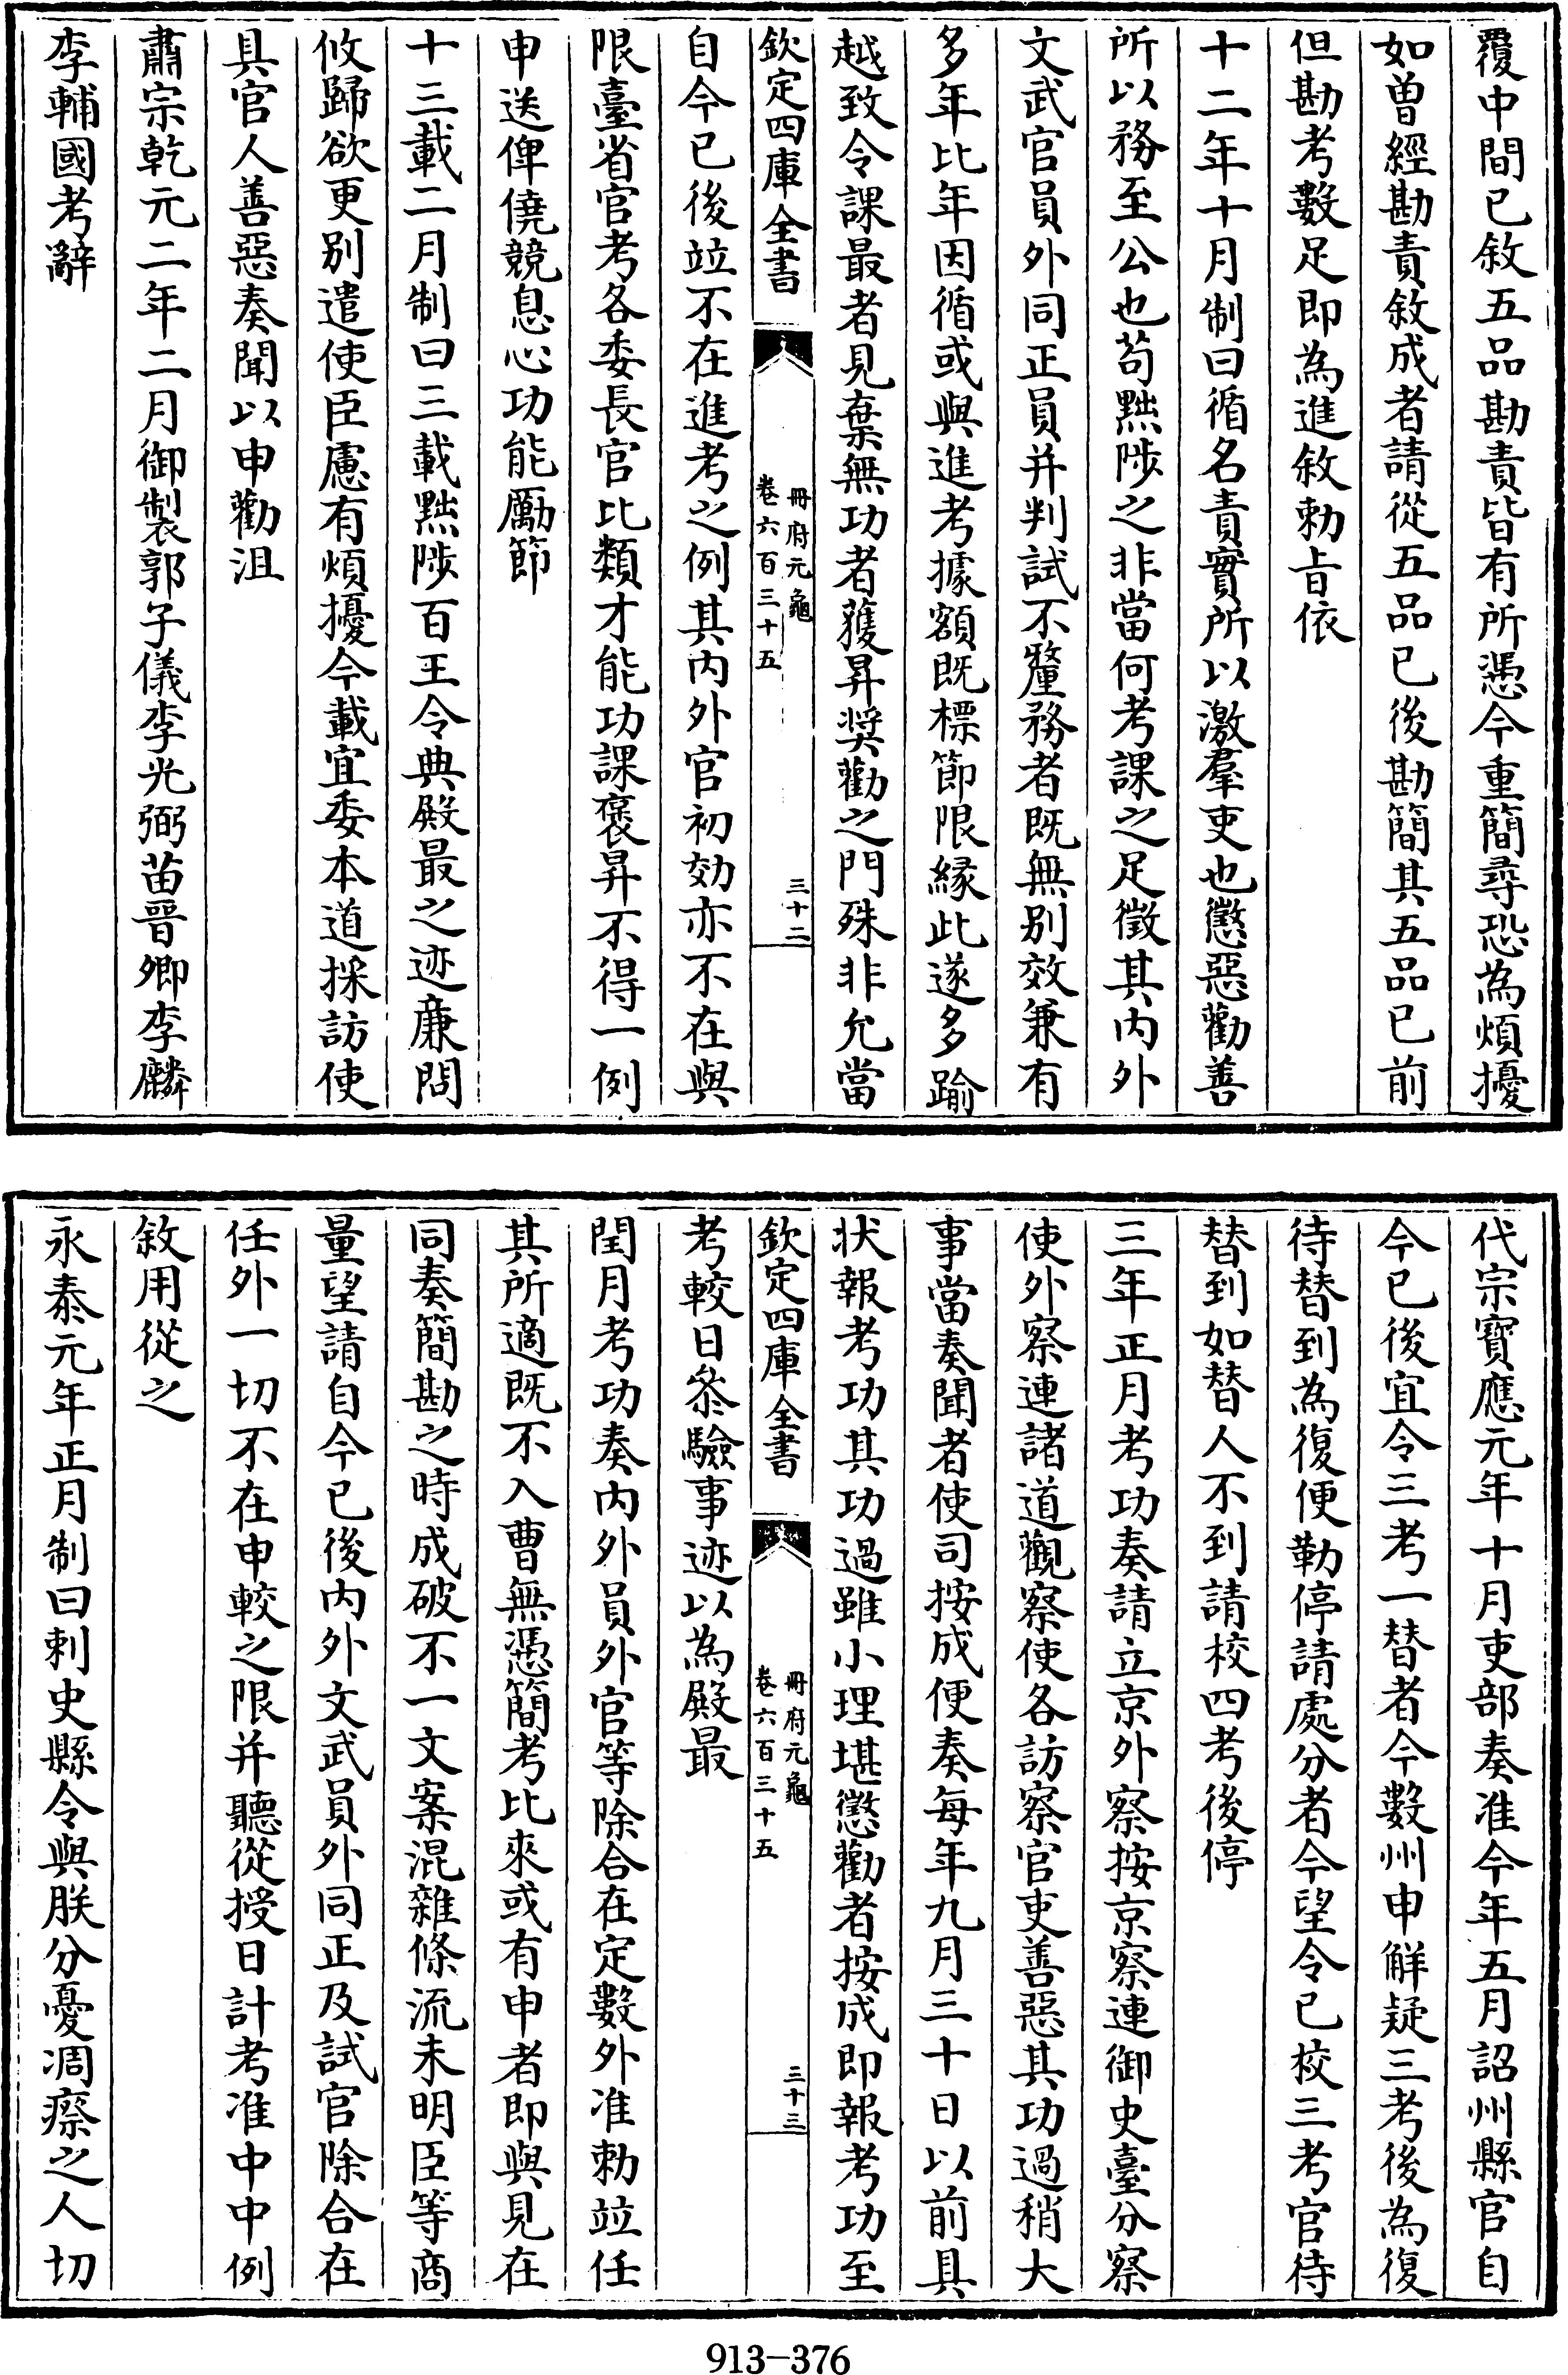 覆中間已敘五品勘責皆有所憑今重簡尋恐為煩擾
如曽經勘責敘成者請從五品已後勘簡其五品已前
但勘考數足即為進敘勅㫖依
十二年十月制曰循名責實所以激羣吏也懲惡勸善
所以務至公也苟黜陟之非當何考課之足徵其内外
文武官員外同正員并判試不釐務者既無别效兼有
多年比年因循或與進考據額既標節限縁此遂多踰
越致令課最者見棄無功者獲昇奨勸之門殊非允當
欽定四庫全書
冊府元龜
卷六百三十五
三十二
自今已後竝不在進考之例其内外官初効亦不在與
限臺省官考各委長官比類才能功課褒昇不得一例
申送俾僥競息心功能厲節
十三載二月制曰三載黜陟百王令典殿最之迹亷問
攸歸欲更别遣使臣慮有煩擾今載宜委本道採訪使
具官人善惡奏聞以申勸沮
肅宗乾元二年二月御製郭子儀李光弼苗晉卿李麟
李輔國考辭
代宗寳應元年十月吏部奏准今年五月詔州縣官自
今已後宜令三考一替者今數州申解疑三考後為復
待替到為復便勒停請處分者今望令已校三考官待
替到如替人不到請校四考後停
三年正月考功奏請立京外察按京察連御史臺分察
使外察連諸道觀察使各訪察官吏善惡其功過稍大
事當奏聞者使司按成便奏每年九月三十日以前具
状報考功其功過雖小理堪懲勸者按成即報考功至
欽定四庫全書
冊府元龜
卷六百三十五
三十三
考較日叅驗事迹以為殿最
閏月考功奏内外員外官等除合在定數外准勅竝任
其所適既不入曹無憑簡考比來或有申者即與見在
同奏簡勘之時成破不一文案混雜條流未明臣等商
量望請自今已後内外文武員外同正及試官除合在
任外一切不在申較之限并聽從授日計考准中中例
敘用從之
永泰元年正月制曰刺史縣令與朕分憂凋瘵之人切
913-376